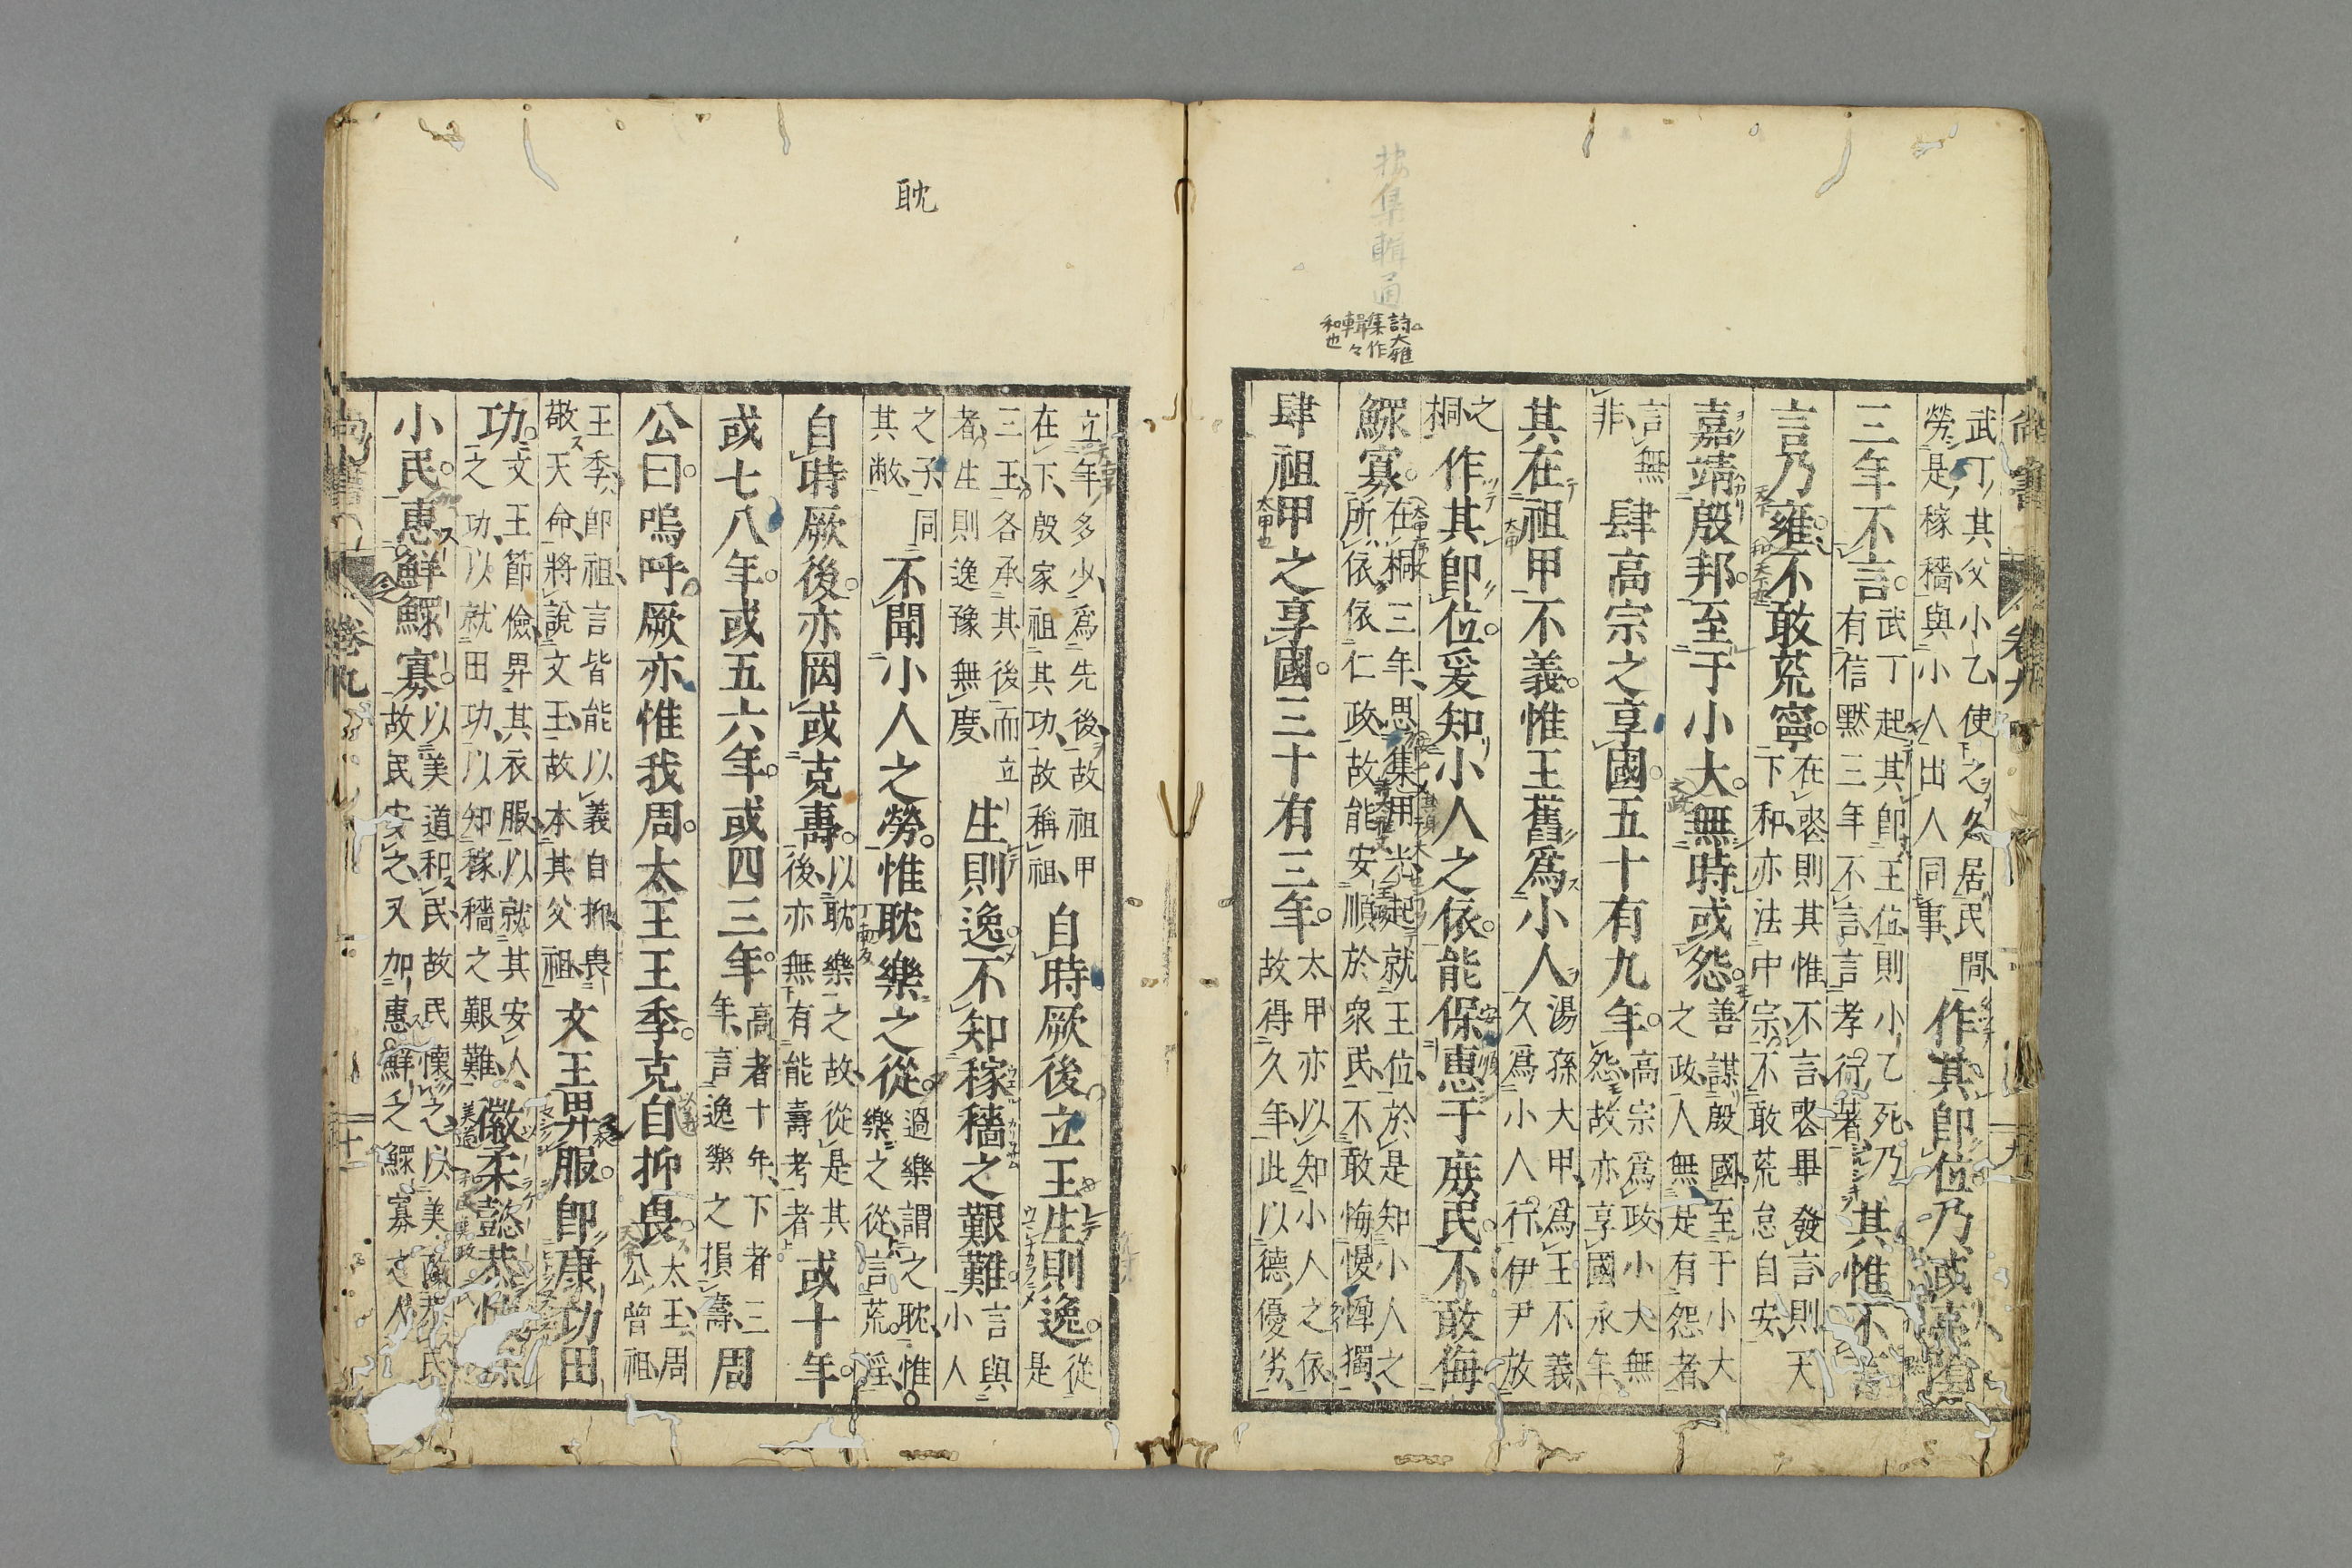 尚書 卷九 九
武丁其父小乙使之久居民間
勞是稼穡與小人出入同事
作其即位乃或
三年不言
武丁起其即王位則小乙死乃
有信默三年不言言孝行著
其惟不言
言乃雍不敢荒寧
在喪則其惟不言喪畢發言則天
下和亦法中宗不敢荒怠自安
嘉靖殷邦至于小大無時或怨
善謀殷國至于小大
之政人無是有怨者
言無
非
肆高宗之享國五十有九年
高宗為政小大無
怨故亦享國永年
其在祖甲不義惟王舊爲小人
湯孫大甲為王不義
久爲小人行伊尹放
之
桐
作其即位爰知小人之依能保惠于庶民不敢侮
鰥寡
在桐三年思集用光起就王位於是知小人之
所依依仁政故能安順於衆民不敢侮慢惸獨
肆祖甲之享國三十有三年
太甲亦以知小人之依
故得久年此以德優劣
按集輯通
詩大雅
集作
輯々
和也
立年多少為先後故祖甲
在下殷家祖其功故稱祖
自時厥後立王生則逸
從
是
三王各承其後而立
者生則逸豫無度
生則逸不知稼穡之艱難
言與
小人
之子同
其敝
不聞小人之勞惟耽樂之從
過樂謂之耽惟
樂之從言荒淫
自時厥後亦罔或克壽
以耽樂之故從是其
後亦無有能壽考者
或十年
或七八年或五六年或四三年
高者十年下者三
年言逸樂之損壽
周
公曰嗚呼厥亦惟我周太王王季克自抑畏
太王周
公曾祖
王季即祖言皆能以義自抑畏
敬天命將說文王故本其父祖
文王卑服即康功田
功
文王節儉卑其衣服以就其安人
之功以就田功以知稼穡之艱難
徽柔懿恭懷保
小民惠鮮鰥寡
以美道和民故民懷之以美政恭民
故民安之又加惠鮮乏鰥寡之人
耽
卷九 十